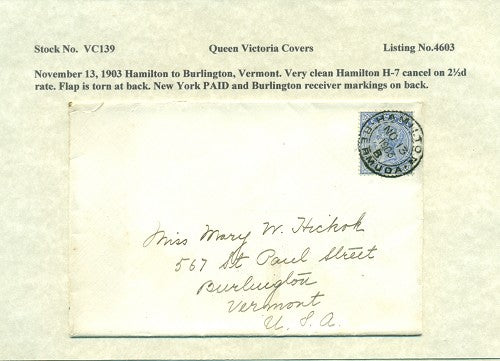 Stock No. VC139 Queen Victoria Covers Listing No.4603
November 13, 1903 Hamilton to Burlington, Vermont. Very clean Hamilton H-7 cancel on 2½d
rate. Flap is torn at back. New York PAID and Burlington receiver markings on back.
HAMILTON
NO 13
1903
BERMUDA
Miss Mary W. Hickok
567 St Paul Street
Burlington
Vermont
U. S. A.